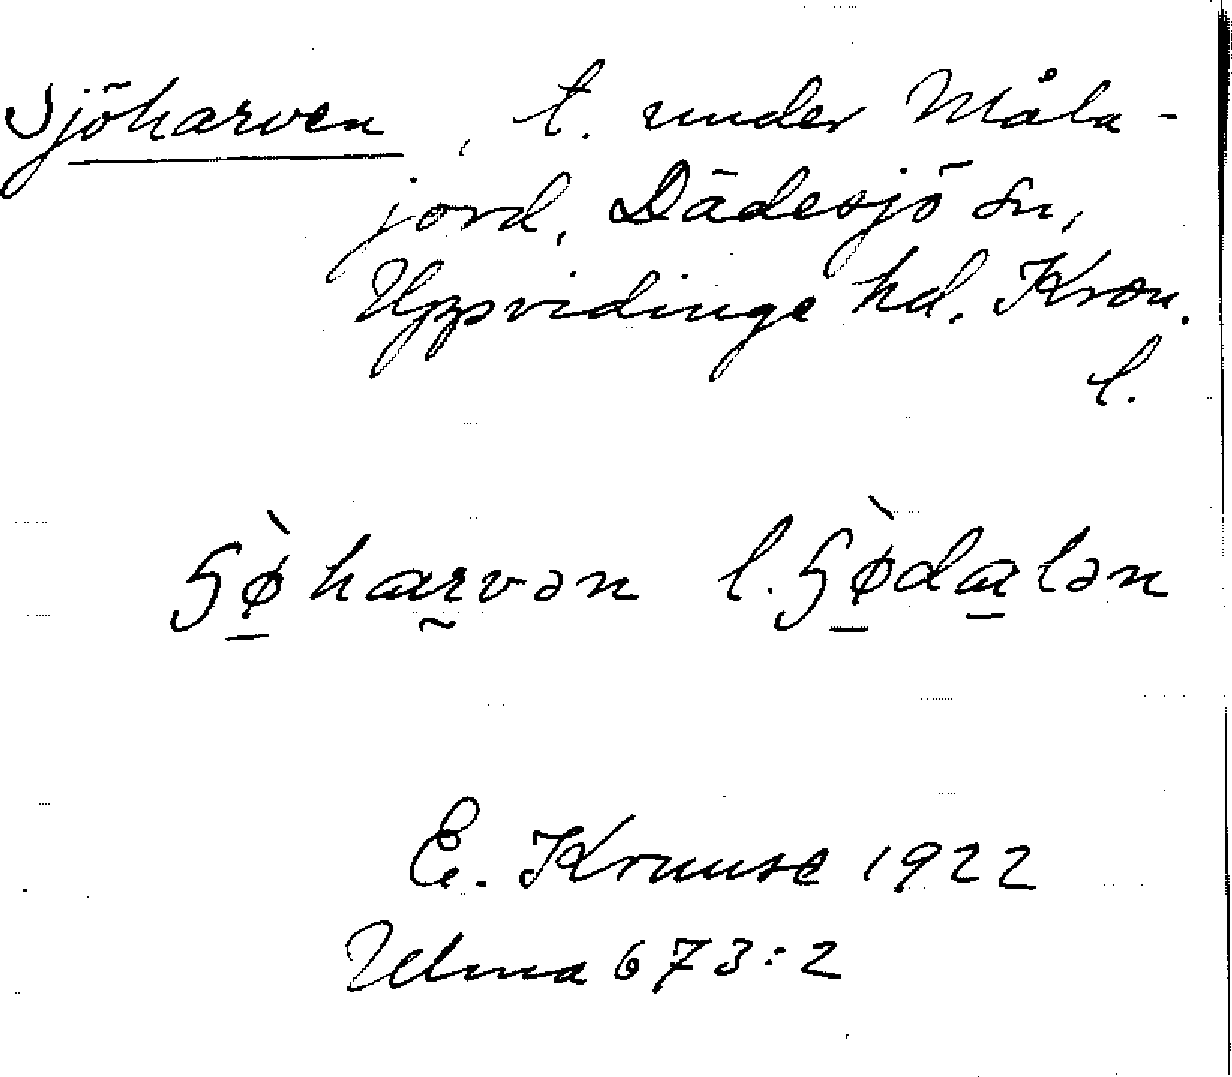 Sjöharven, t. under Måla-
jord, Dädesjö sn,
Uppvidinge hd. Kron.
l.
l.
E. Kruuse 1922
Ulma 673:2